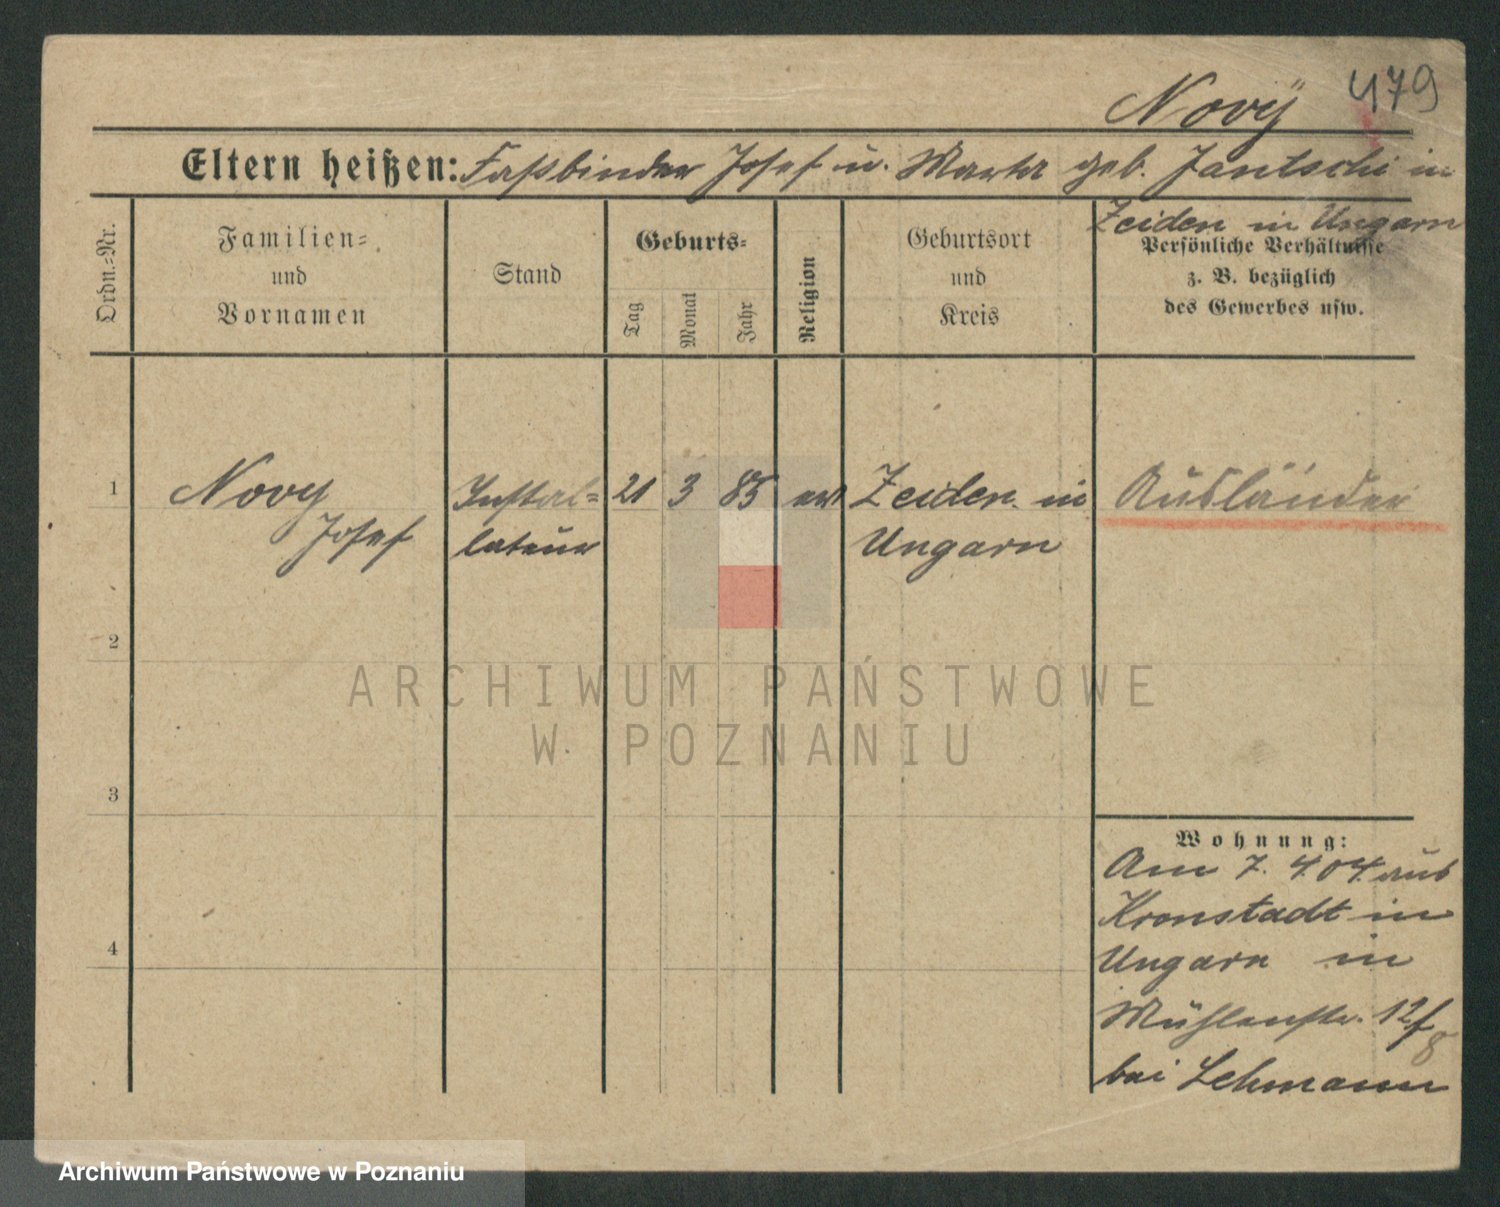 479
Novÿ
Eltern heißen: Faßbinder Josef u. Marta geb. Jantschi in
Zeiden in Ungarn
Ordn.-Nr.
Familien-
und
Vornamen
Stand
Geburts-
Tag
Monat
Jahr
Religion
Geburtsort
und
Kreis
Persönliche Verhältnisse
z. B. bezüglich
des Gewerbes usw.
1 Novy Instal- 21 3 85 ev. Zeiden in Ausländer
Josef lateur Ungarn
2
3
4
Wohnung:
Am 7. 4. 04. aus
Kronstadt in
Ungarn in
Mühlenstr. 12f
8
bei Lehmann
ARCHIWUM PAŃSTWOWE
W POZNANIU
Archiwum Państwowe w Poznaniu